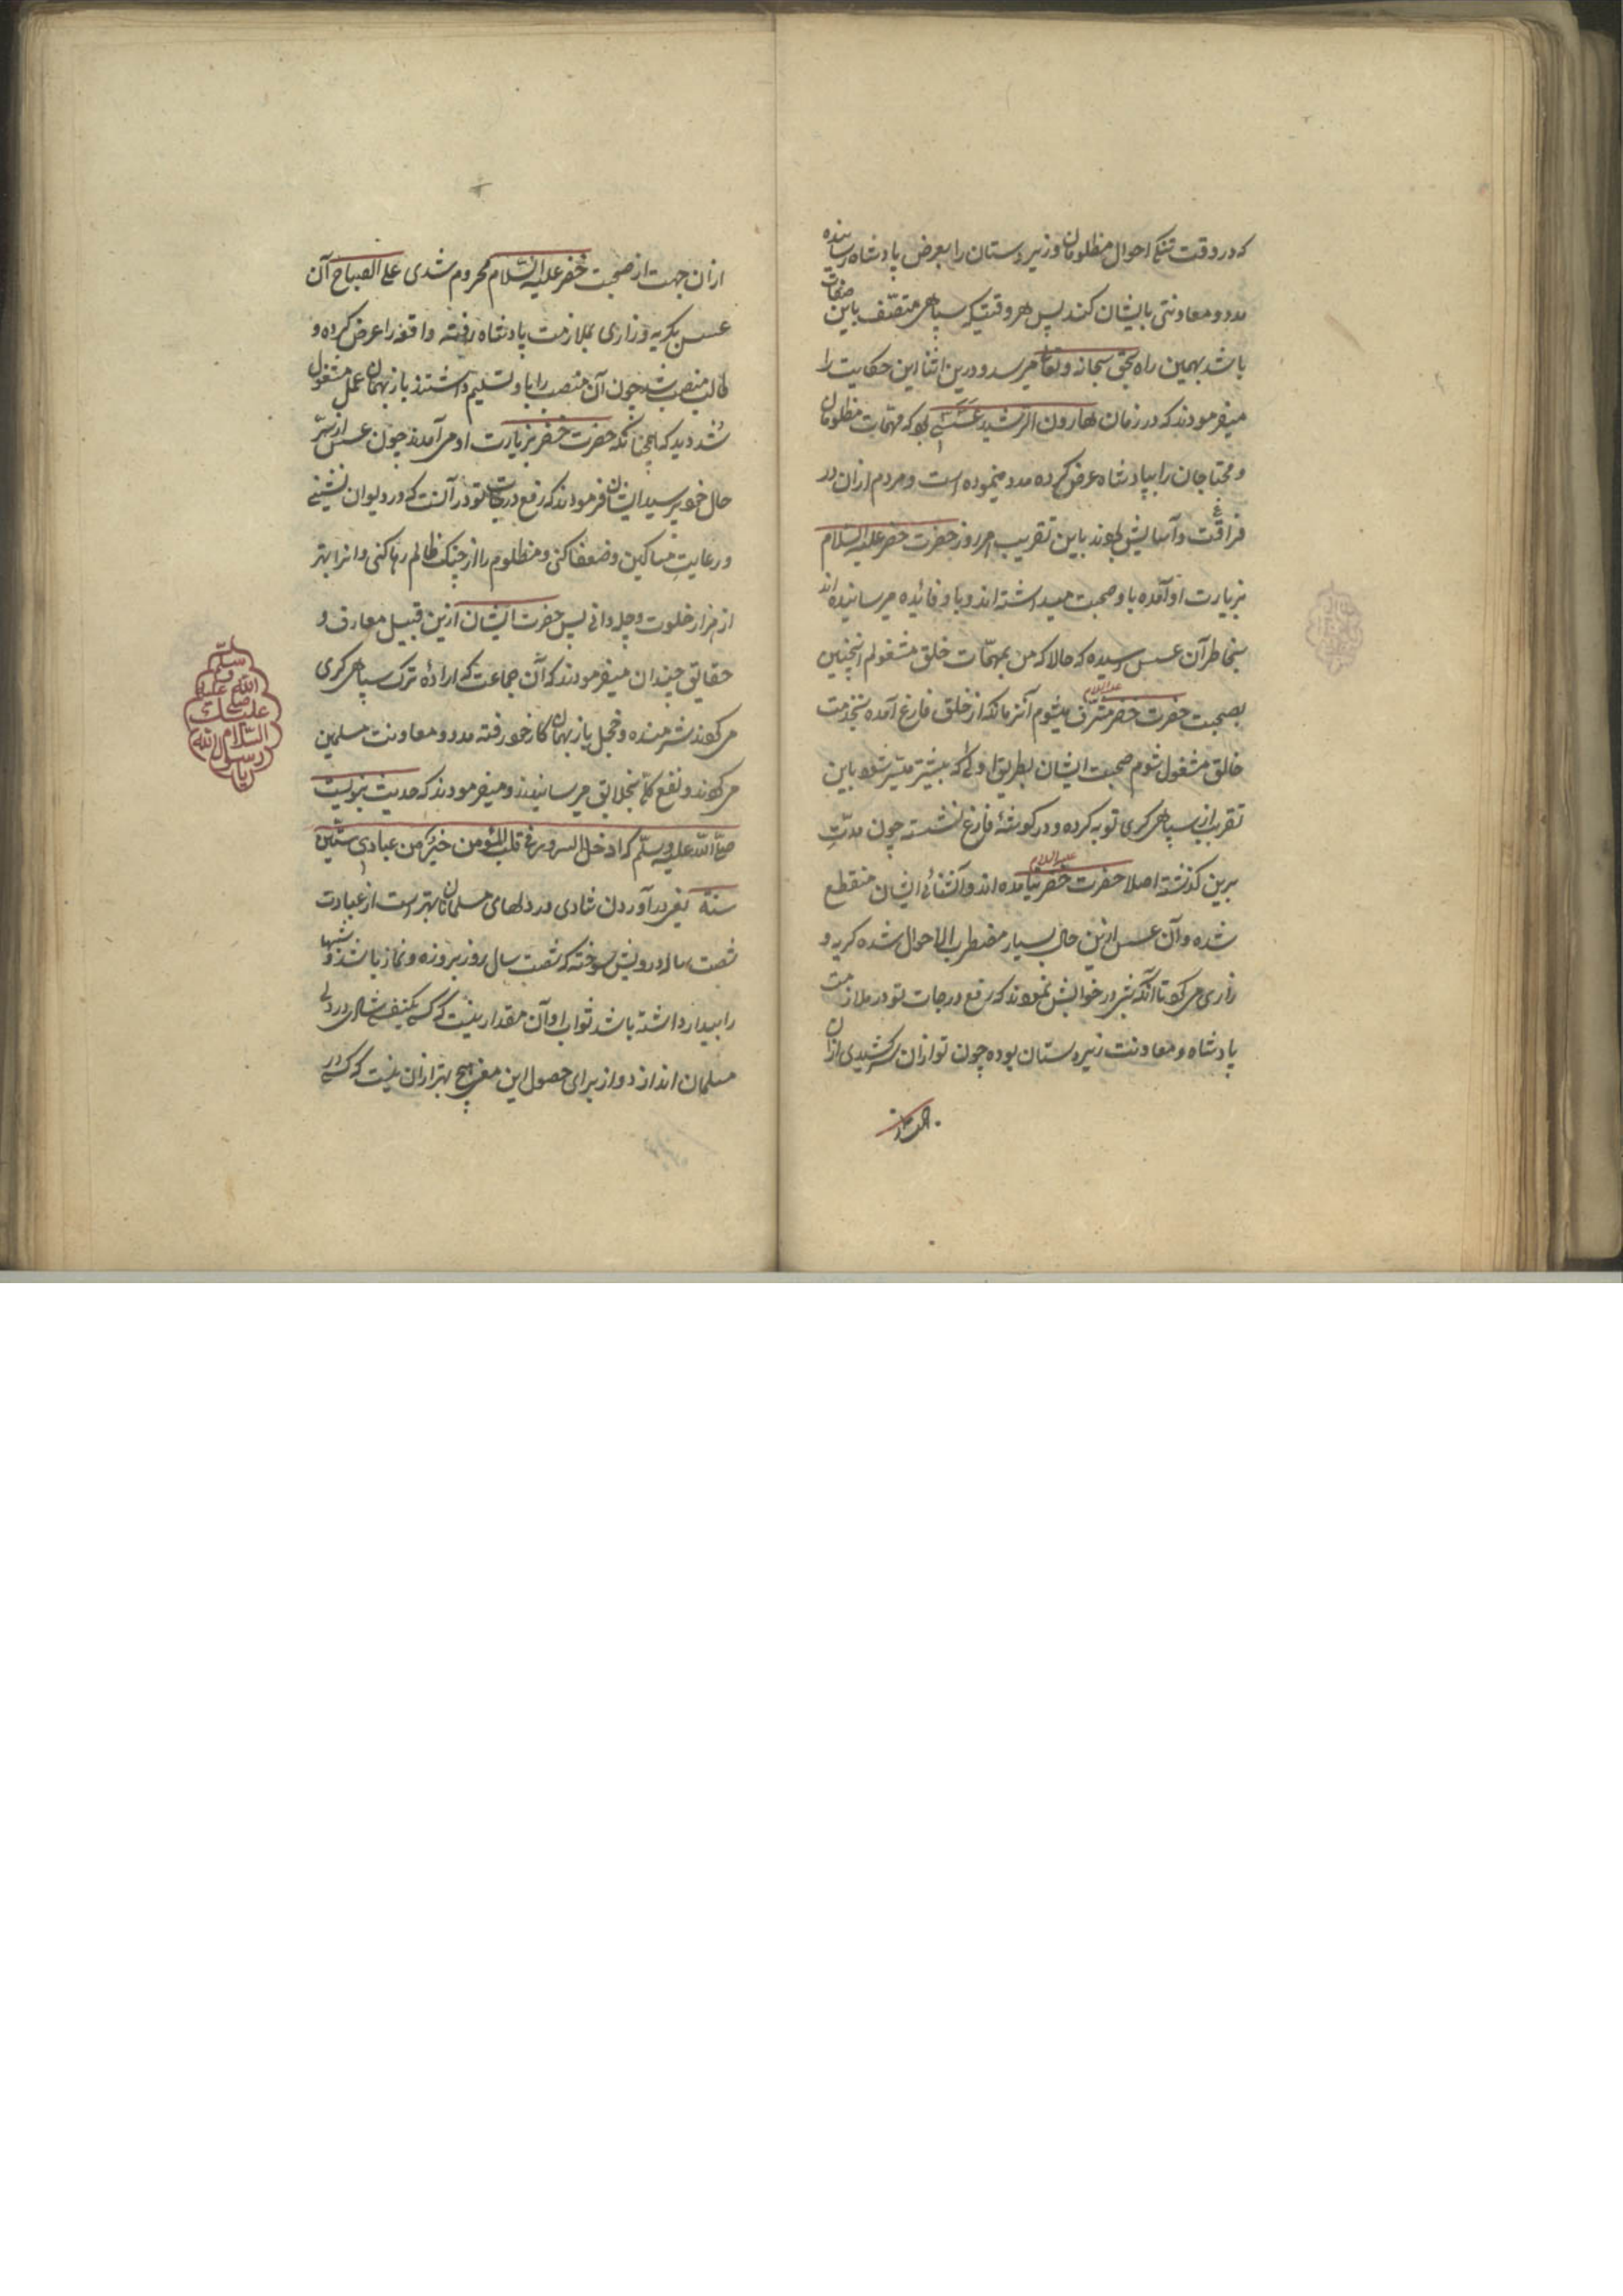 که در وقت تنکی احوال مظلومان و زیردستان را بعرض پادشاه رسانیده
مدد و معاونتی بایشان کند پس هر وقتیکه سپاهی متصف باین صفات
باشد بهمین راه بحق سبحانه و تعالی میرسد و درین اثنا این حکایت را
میفرمودند که در زمان هارون الرشید عسسی بوده که مهمات مظلومان
و محتاجان را بپادشاه عرض کرده مدد مینموده است و مردم ازان در
فراغت و آسایش بودند باین تقریب هر روز حضرت خضر علیه السلام
بزیارت او آمده باو صحبت میداشته اند و باو فائده میرسانیده اند
بخاطر آن عسس رسیده که حالا که من بمهمات خلق مشغولم اینچنین
بصحبت حضرت خضر علیه السلام مشرف میشوم آنزمانکه از خلق فارغ آمده بخدمت
خالق مشغول شوم صحبت ایشان بطریق اولی که بیشتر میسر شود باین
تقریب از سپاهی کری توبه کرده و در کوشهٔ فارغ نشسته چون مدتی
برین کذشته اصلا حضرت خضر علیه السلام نیامده اند و آشنائی ایشان منقطع
شده و آن عسس ازین حال بسیار مضطرب الاحوال شده کریه و
زاری میکرد تا آنکه شبی در خوابش نمودند که رفع درجات تو در ملازمت
پادشاه و معاونت زیردستان بوده چون تو ازان سر کشیدی ازان
ازان جهت از صحبت خضر علیه السلام محروم شدی علی الصباح آن
عسس بکریه و زاری بملازمت پادشاه رفته واقعه را عرض کرده و
طالب منصب شد چون آن منصب را باو تسلیم داشتند باز بهمان عمل مشغول
شد دید که همچنانکه حضرت خضر بزیارت او می آمدند چون عسس از سر
حال خود پرسید ایشان فرمودند که رفع درجات تو در آنست که در دیوان نشینی
و رعایت مساکین و ضعفا کنی و مظلوم را از چنک ظالم رها کنی و انرا بهتر
از هزار خلوت و چله دانی پس حضرت ایشان ازین قبیل معارف و
حقایق چندان میفرمودند که آن جماعت که ارادهٔ ترک سپاهی کری
میکردند شرمنده و خجل باز بهمان کار خود رفته مدد و معاونت مسلمین
میکردند و نفع بخلایق میرسانیدند و میفرمودند که حدیث نبویست
صلی الله علیه وسلم که ادخال السرور فی قلب المؤمن خیر من عبادی ستین
سنة یعنی درآوردن شادی در دلهای مسلمانان بهتر است از عبادت
شصت ساله درویش سوخته که شصت سال روز بروزه و نماز باشد و شبها
را بیدار داشته باشد ثواب او آن مقدار نیست که کسی یکنفس شادی در دل
مسلمان اندازد و از برای حصول این معنی هیچ بهتر ازان نیست که کسی در
صلی
الله علیه
وسلم
علیک
السلام
یا رسول الله